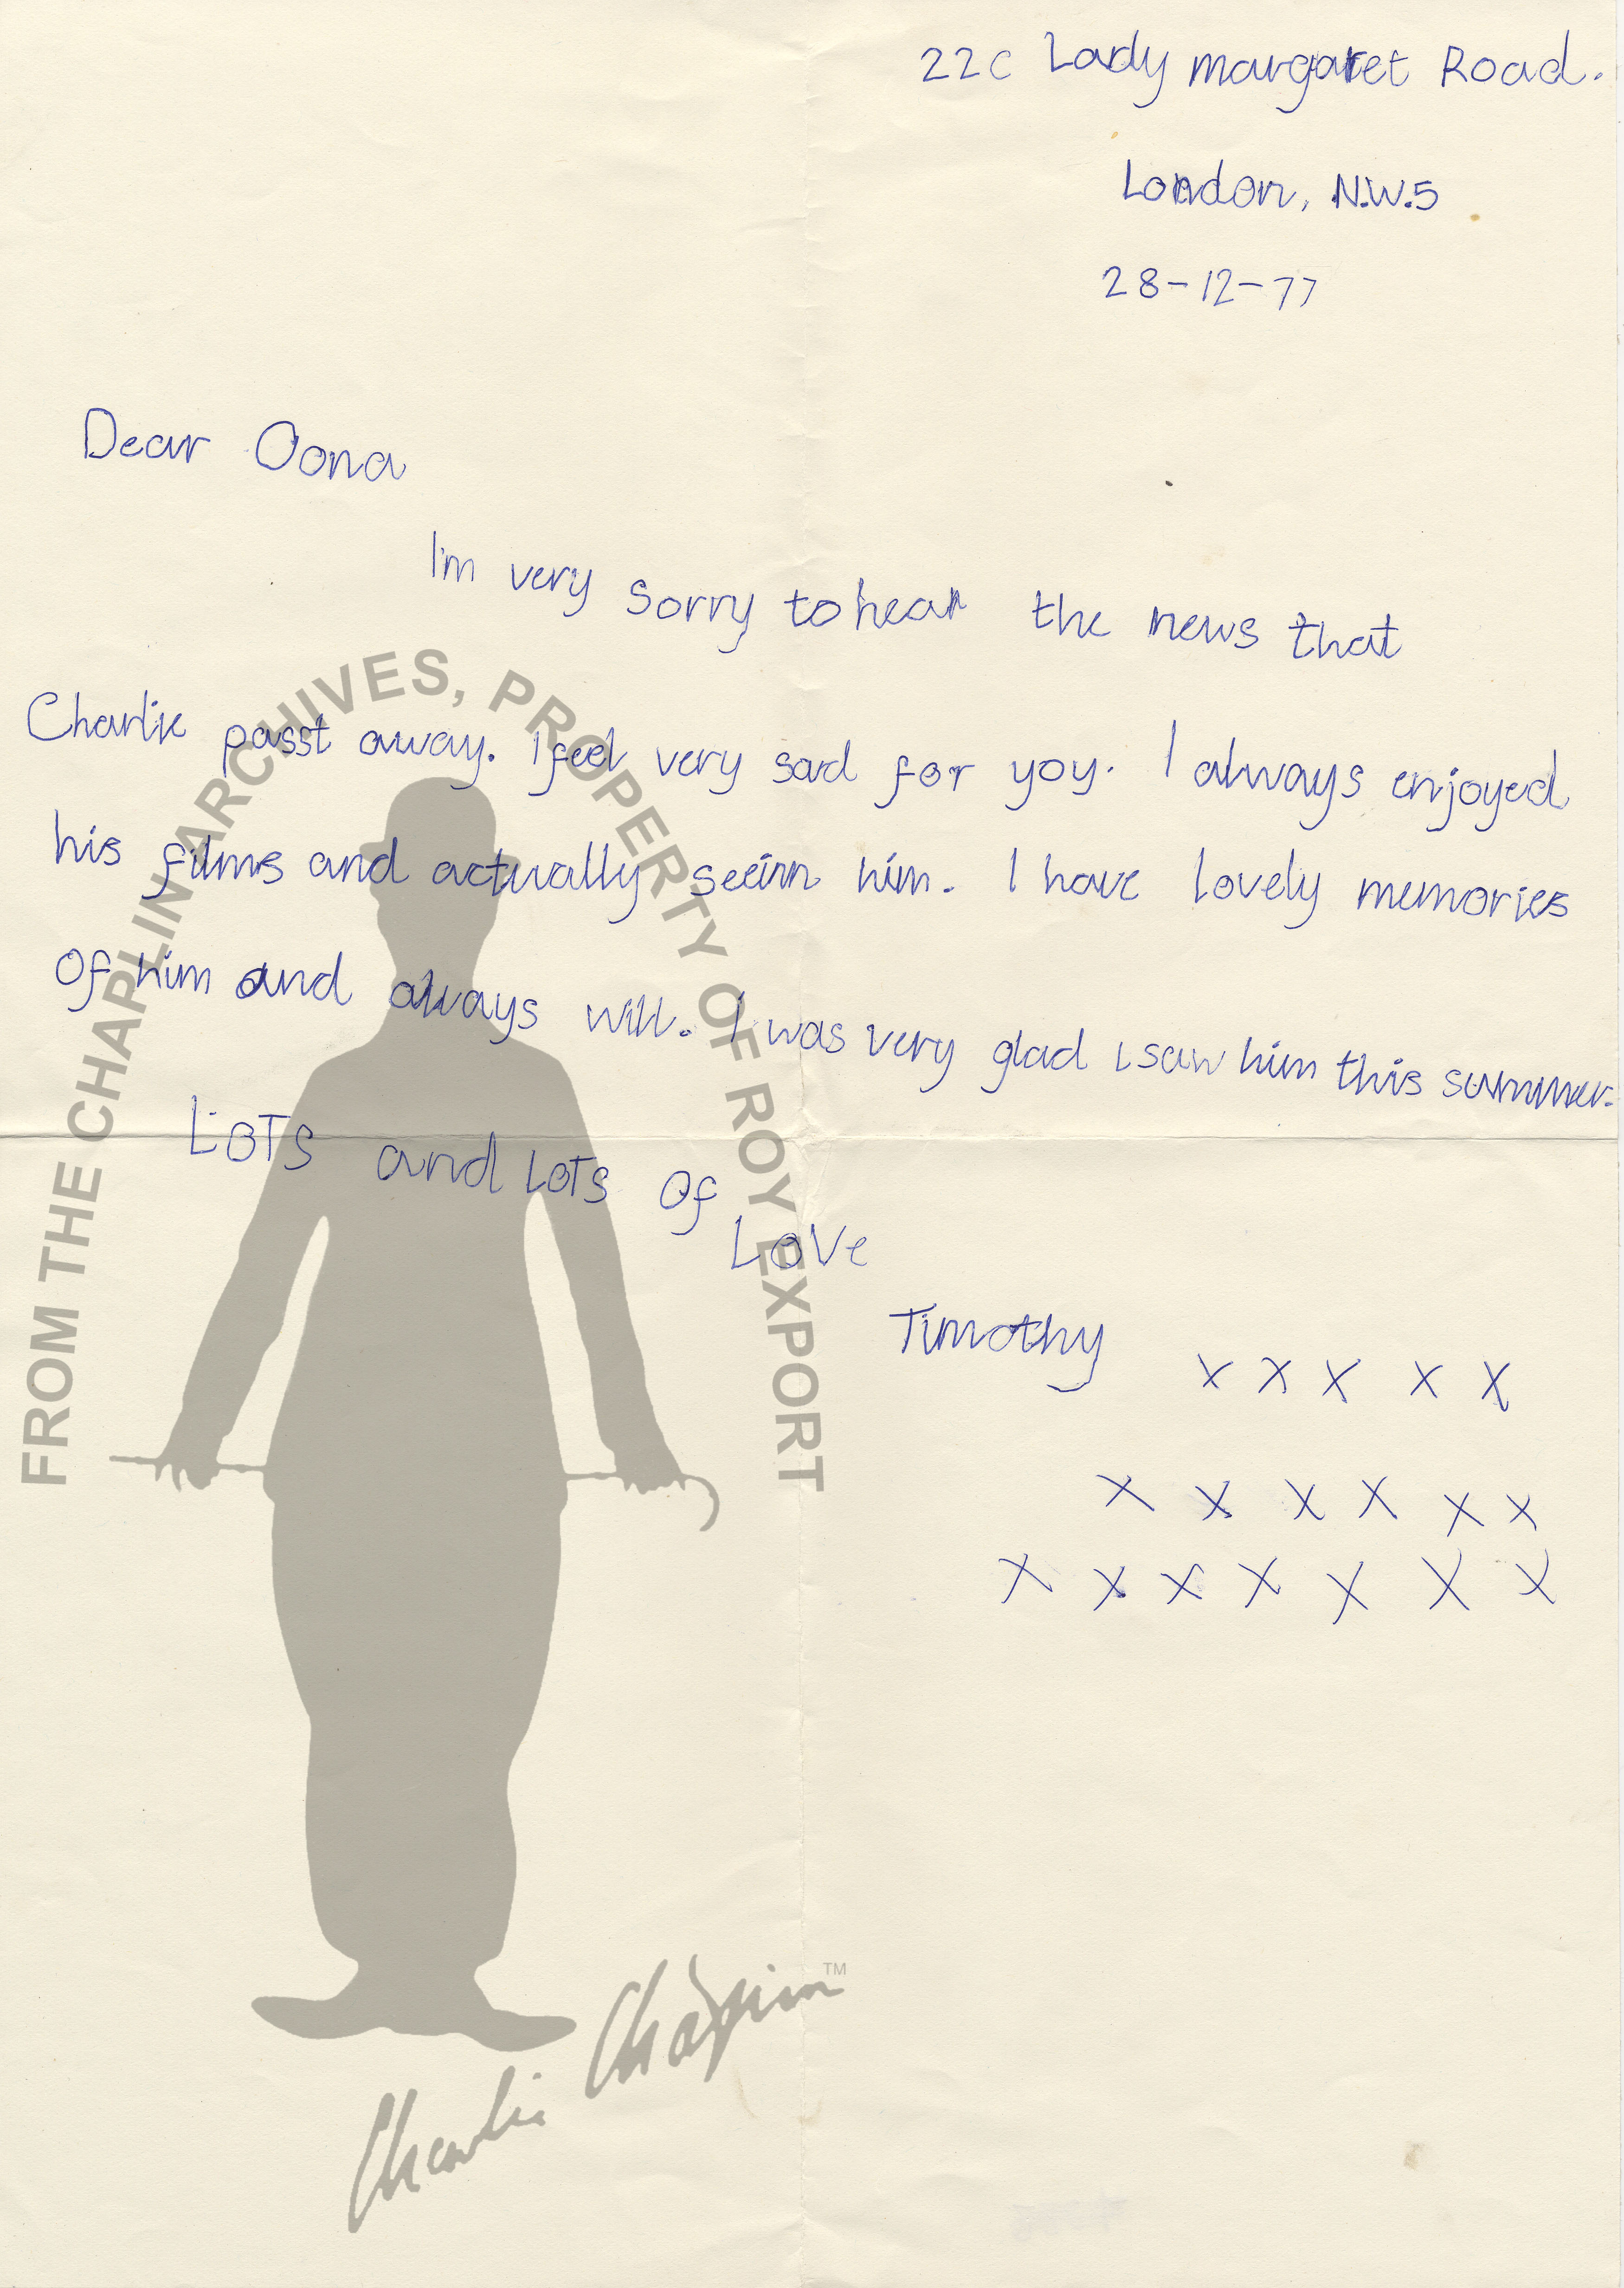 22c Lady margaret Road.
London, N.W.5
28-12-77
Dear Oona
I'm very sorry to hear the news that
Charlie passt away. I feel very sad for yoy. I always enjoyed
his films and actually seeinn him. I have lovely memories
of him and always will. I was very glad I saw him this summer.
LOTS and LOTS of
LOVe
Timothy x x x x x
x x x x x x
x x x x x x x
FROM THE CHAPLIN ARCHIVES, PROPERTY OF ROY EXPORT
Charlie Chaplin TM